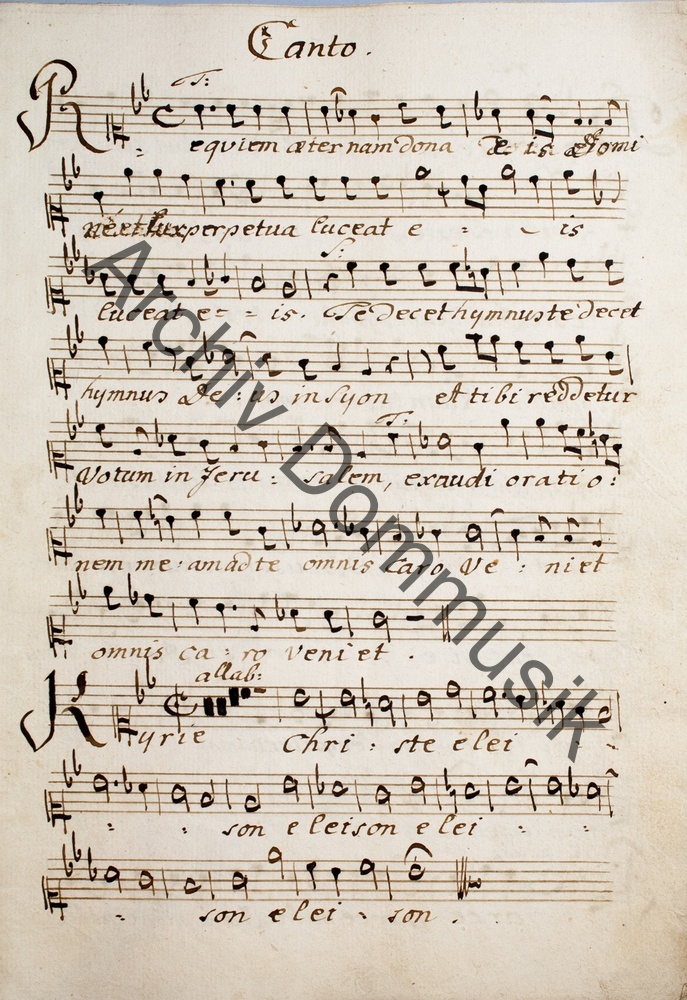 Canto.
T:
Requiem æternam dona eis Domi
ne et lux perpetua luceat e - is
S:
luceat e - - is. Te decet hymnus te decet
hymnus De : us in Syon et tibi reddetur
T:
Votum in Jeru : salem, exaudi oratio :
nem me : am ad te omnis Caro Ve : niet
omnis ca : ro veniet .
allab:
Kyrie Chri : ste elei
: : son eleison elei : :
: son elei : son .
Archiv Dommusik